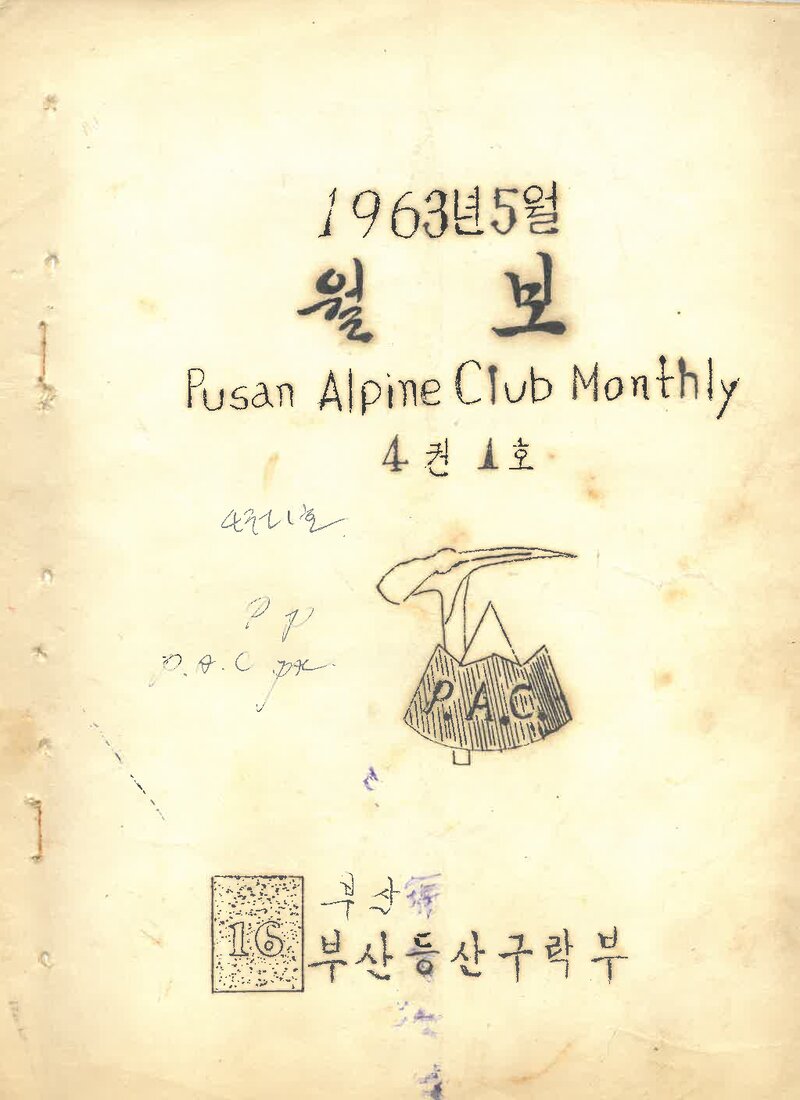 1963년5월
월 보
Pusan Alpine Club Monthly
4권 1호
4권 1호
P p
P.A.C
P.A.C.
부산
16 부산등산구락부